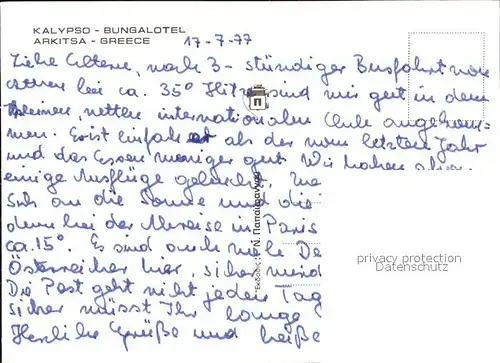 KALYPSO - BUNGALOTEL
ARKITSA - GREECE
17-7-77
Liebe Eltern, nach 3-stündiger Busfahrt von
Athen bei ca. 35° Hitze sind wir gut in dem
kleinen, netten internationalen Club angekom-
men. Er ist einfacher als der vom letzten Jahr
und das Essen weniger gut. Wir haben
einige Ausflüge gebucht.
sich an die Sonne und die
denn bei der Abreise in Paris
ca. 15°. Es sind auch viele De
Österreicher hier, sicher sind
Die Post geht nicht jeden Tag
sicher müsst Ihr lange
Herzliche Grüße und heiße
Εκδοσις: Ν. Παπαϊωάννου
privacy protection
Datenschutz